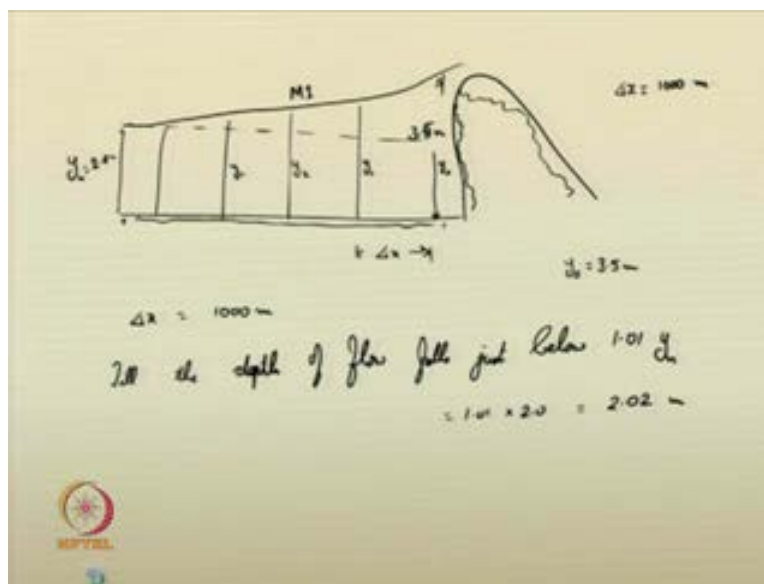 M1
Δx = 1000 m
3.5 m
Δx
y₀ = 3.5 m
Δx = 1000 m
Till the depth of flow falls just below 1.01 yₙ
= 1.01 x 2.0 = 2.02 m
NPTEL